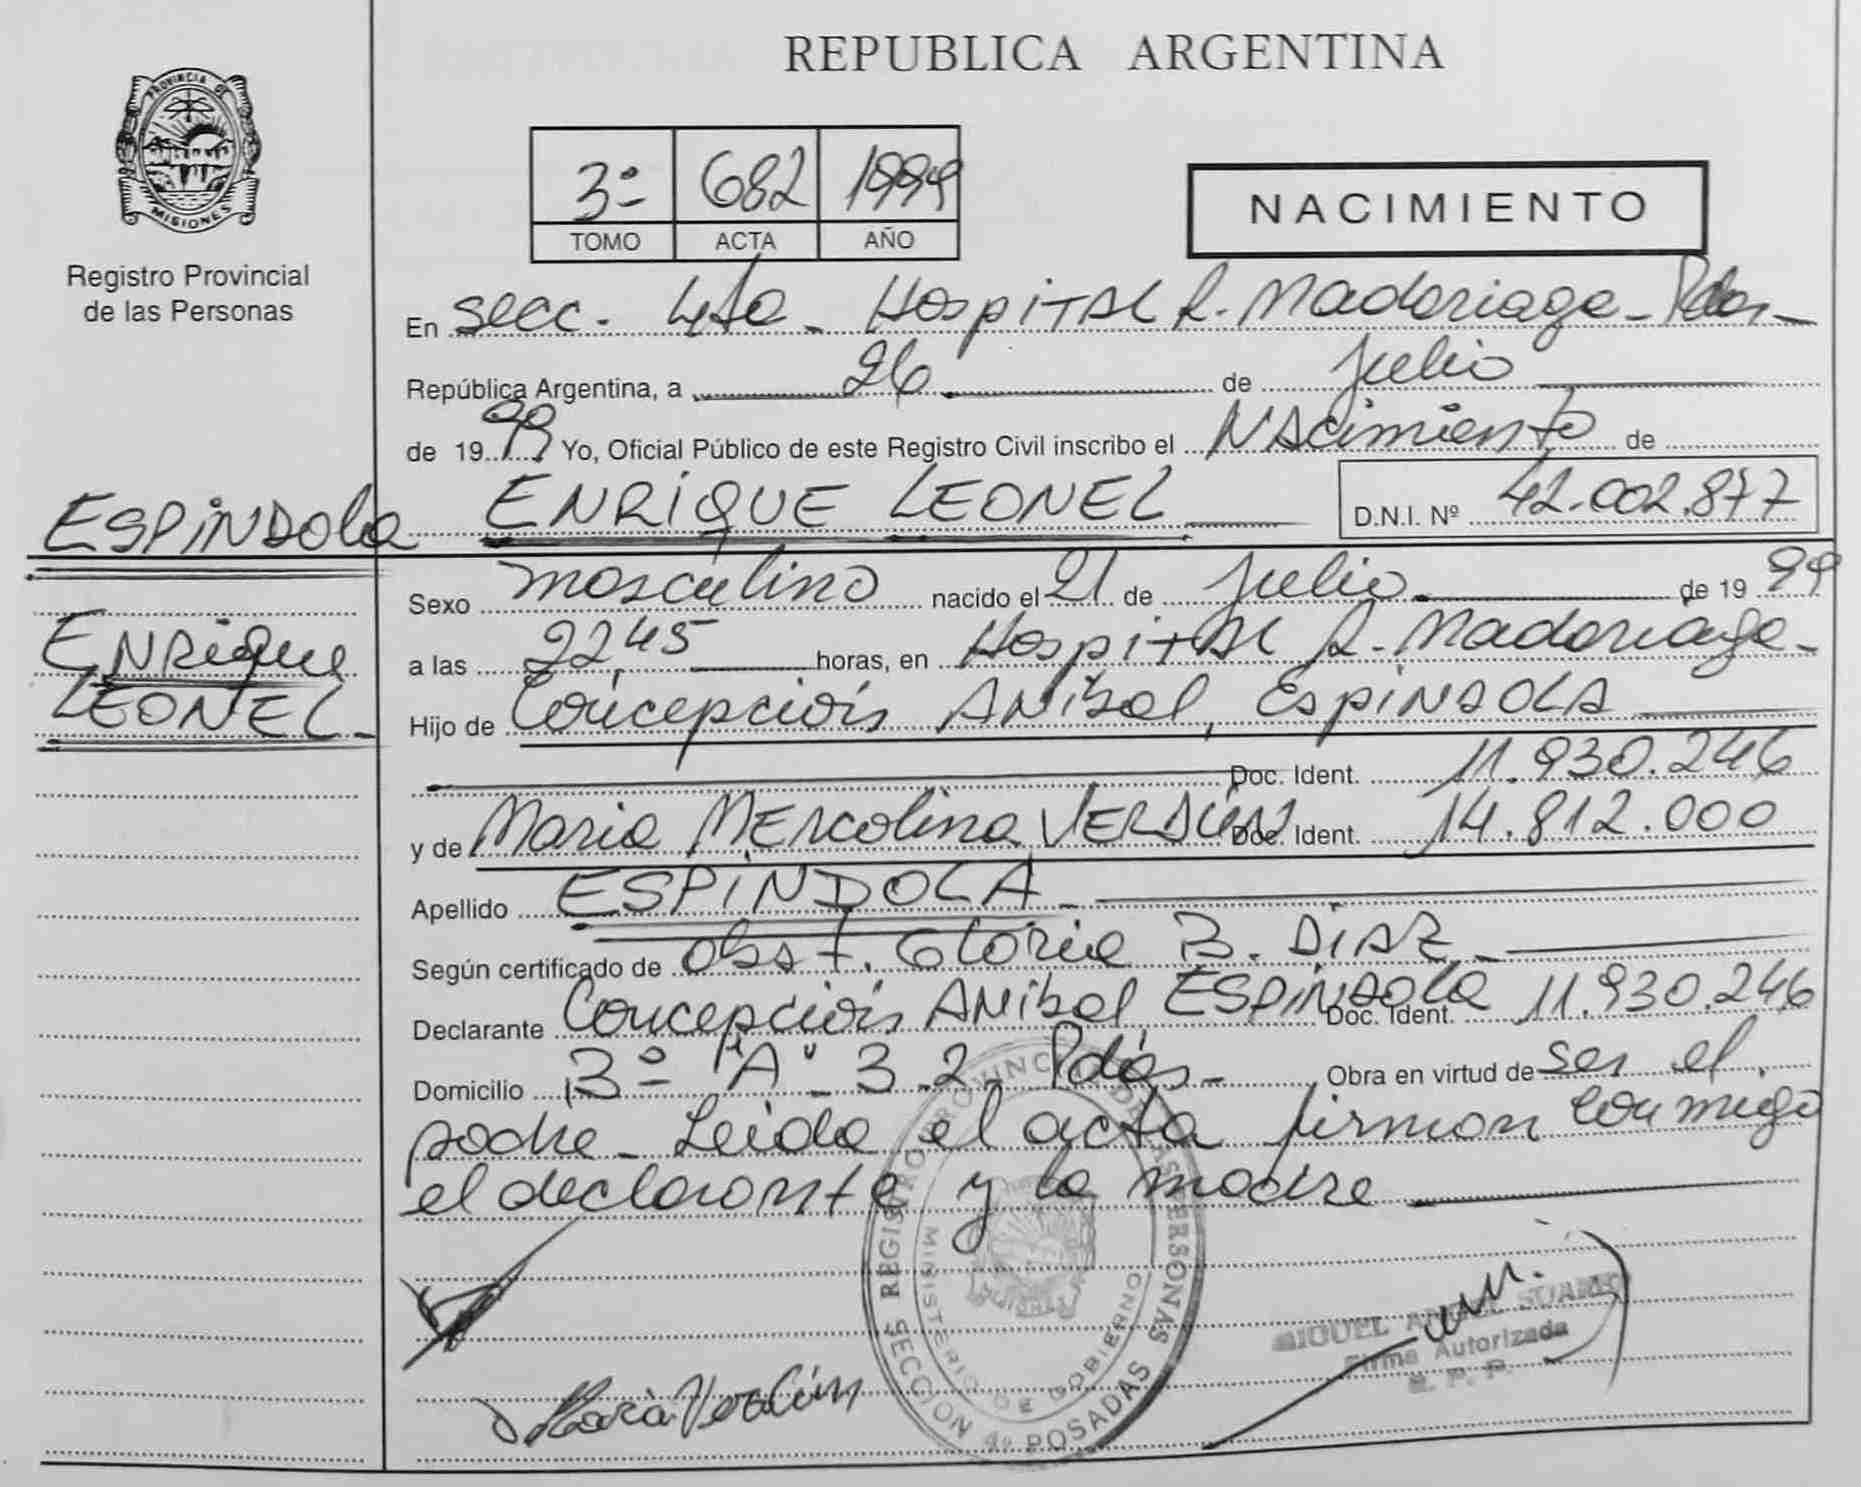 REPUBLICA ARGENTINA
PROVINCIA DE
MISIONES
Registro Provincial
de las Personas
3º 682 1999
TOMO ACTA AÑO
NACIMIENTO
En secc. 4ta - Hospital R. Madariaga - Pdas -
República Argentina, a 26 de Julio
de 1999 Yo, Oficial Público de este Registro Civil inscribo el Nacimiento de
ESPINDOLA ENRIQUE LEONEL D.N.I. Nº 42.002.877
Sexo masculino nacido el 21 de Julio de 1999
Enrique
LEONEL -
a las 22,45 horas, en Hospital R. Madariaga -
Hijo de Concepción Anibal, ESPINDOLA
Doc. Ident. 11.930.246
y de Maria Mercolina VERDÚN Doc. Ident. 14.812.000
Apellido ESPINDOLA -
Según certificado de Obst. Gloria B. DIAZ -
Declarante Concepción Anibal ESPINDOLA Doc. Ident. 11.930.246
Domicilio 3º "A" 3.2. Pdas - Obra en virtud de ser el
padre - Leida el acta firman conmigo
el declarante y la madre
Maria Verdún
REGISTRO PROVINCIAL DE LAS PERSONAS
MINISTERIO DE GOBIERNO
SECCION 4º POSADAS
MIGUEL ANGEL SUAREZ
Firma Autorizada
R. P. P.